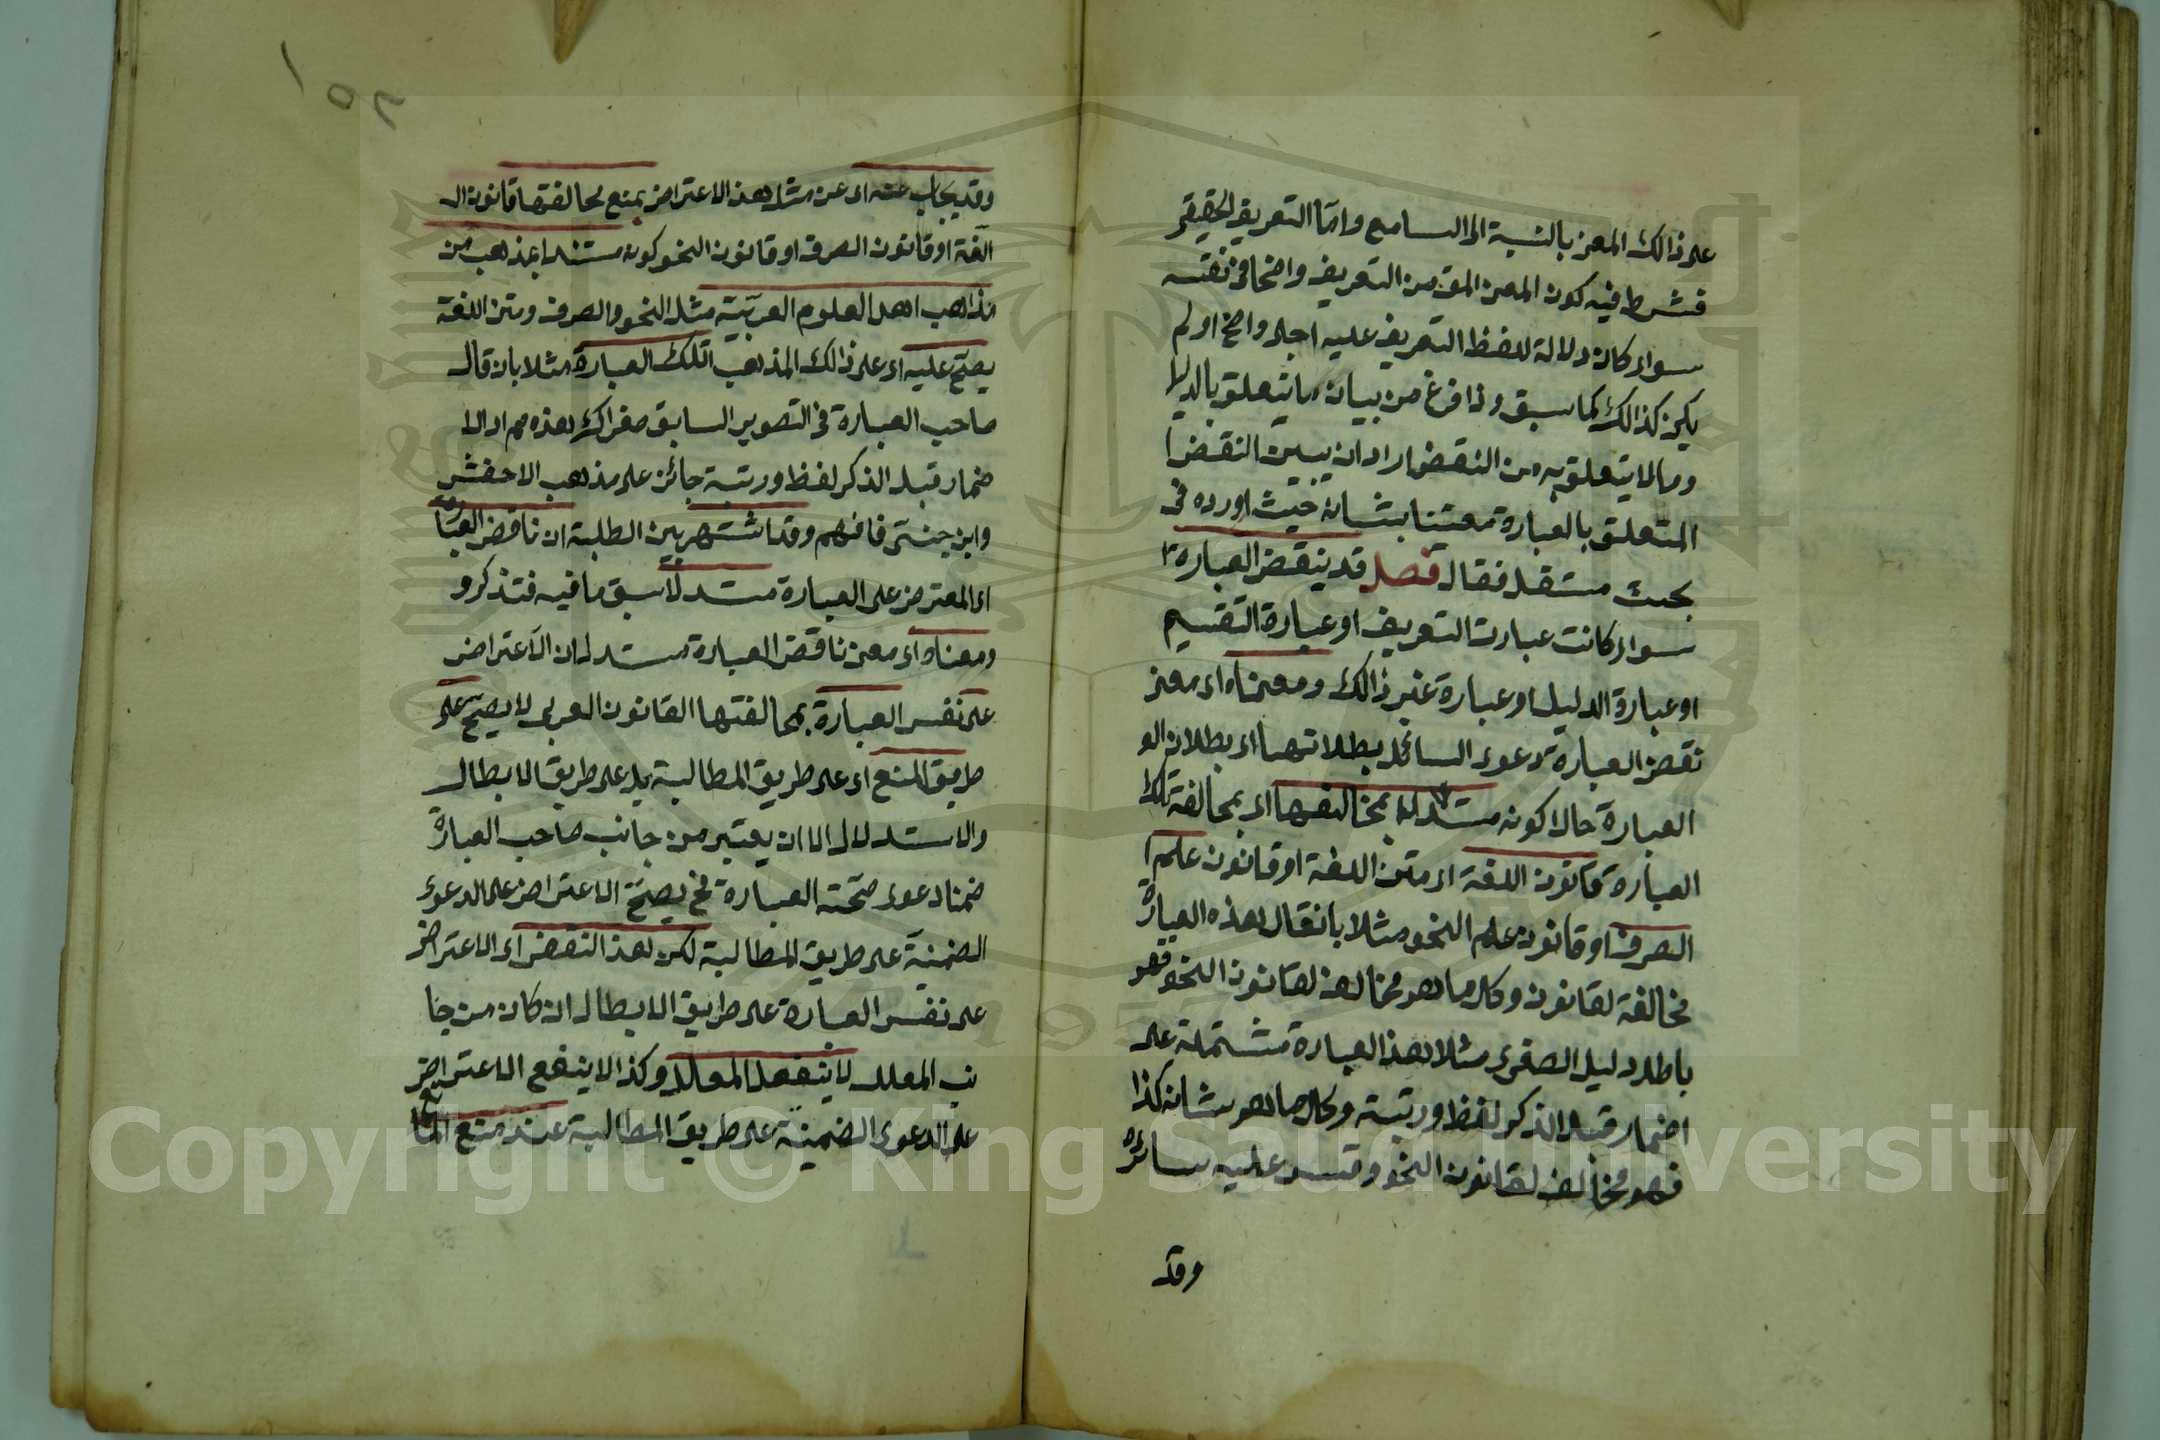 على ذالك المعنى بالنسبة الى السامع واما التعريف الحقيقي
فشرط فيه كون المعنى المق من التعريف واضحا في نفسه
سواء كان دلالة للفظ التعريف عليه اجلى واضح او لم
يكن كذالك كما سبق و ذا فرغ من بيان ما يتعلق بالدليل
وما لا يتعلق به من النقض اراد ان يبين النقض ا
المتعلق بالعبارة معتينا بشانه حيث اورده في
بحث مستقل فقال فصل قد ينقض العبارة
سواء كانت عبارت التعريف او عبارة التقسيم
او عبارة الدليل او عبارة غير ذالك ومعناه اى معنى
نقض العبارة دعوى السائل بطلانها اى بطلان الو
العبارة حالا كونه مستدلا بمخالفها اى بمخالفة تلك
العبارة قانون اللغة اى متن اللغة او قانون علم ا
الصرف او قانون علم النحو مثلا بانقال هذه العبارة
مخالفة لقانون وكل ما هو مخالف لقانون النحو فهو
باطل دليل الصغرى مثلا هذا العبارة مشتملة على
اضمار قبل الذكر لفظ ورتبته وكل ما هو شانه كذا
فهو مخالف لقانون النحو وقس عليه سائره
وقد
١٥٢
وقد يجاب عنه اى عن مثل هذا الاعتراض بمنع مخالفتها قانون ال
اللغة او قانون الصرف او قانون النحو كونه مستندا بمذهب من
مذاهب اهل العلوم العربية مثل النحو والصرف ومتن اللغة
يصح عليه اى على ذالك المذهب اتلك العبارة مثلا بان قال
صاحب العبارة في التصوير السابق صغراك هذه مم اذ الا
ضمار قبل الذكر لفظ ورتبة جائز على مذهب الاخفش
وابن جنى فافهم وقد اشتهر بين الطلبة ان ناقض العبارة
اى المعترض على العبارة مستدل سبق ما فيه فتذكر و
ومعناه اى معنى ناقض العبارة مستدل ان الاعتراض
على نفس العبارة بمخالفتها القانون العربى لا يصح على
طريق المنع اى على طريق المطالبة بل على طريق الابطال
والاستدلال الا ان يعتبر من جانب صاحب العبارة
ضمنا دعوى صحة العبارة فح يصح الاعتراض على الدعوى
الضمنية على طريق المطالبة لكن هذا النقض اى الاعتراض
على نفس العبارة على طريق الابطال ان كان من جا
نب المعلل لا ينفعل المعلل وكذا لا ينفع الاعتراض
على الدعوى الضمنية على طريق المطالبة عند منع
Copyright © King Saud University